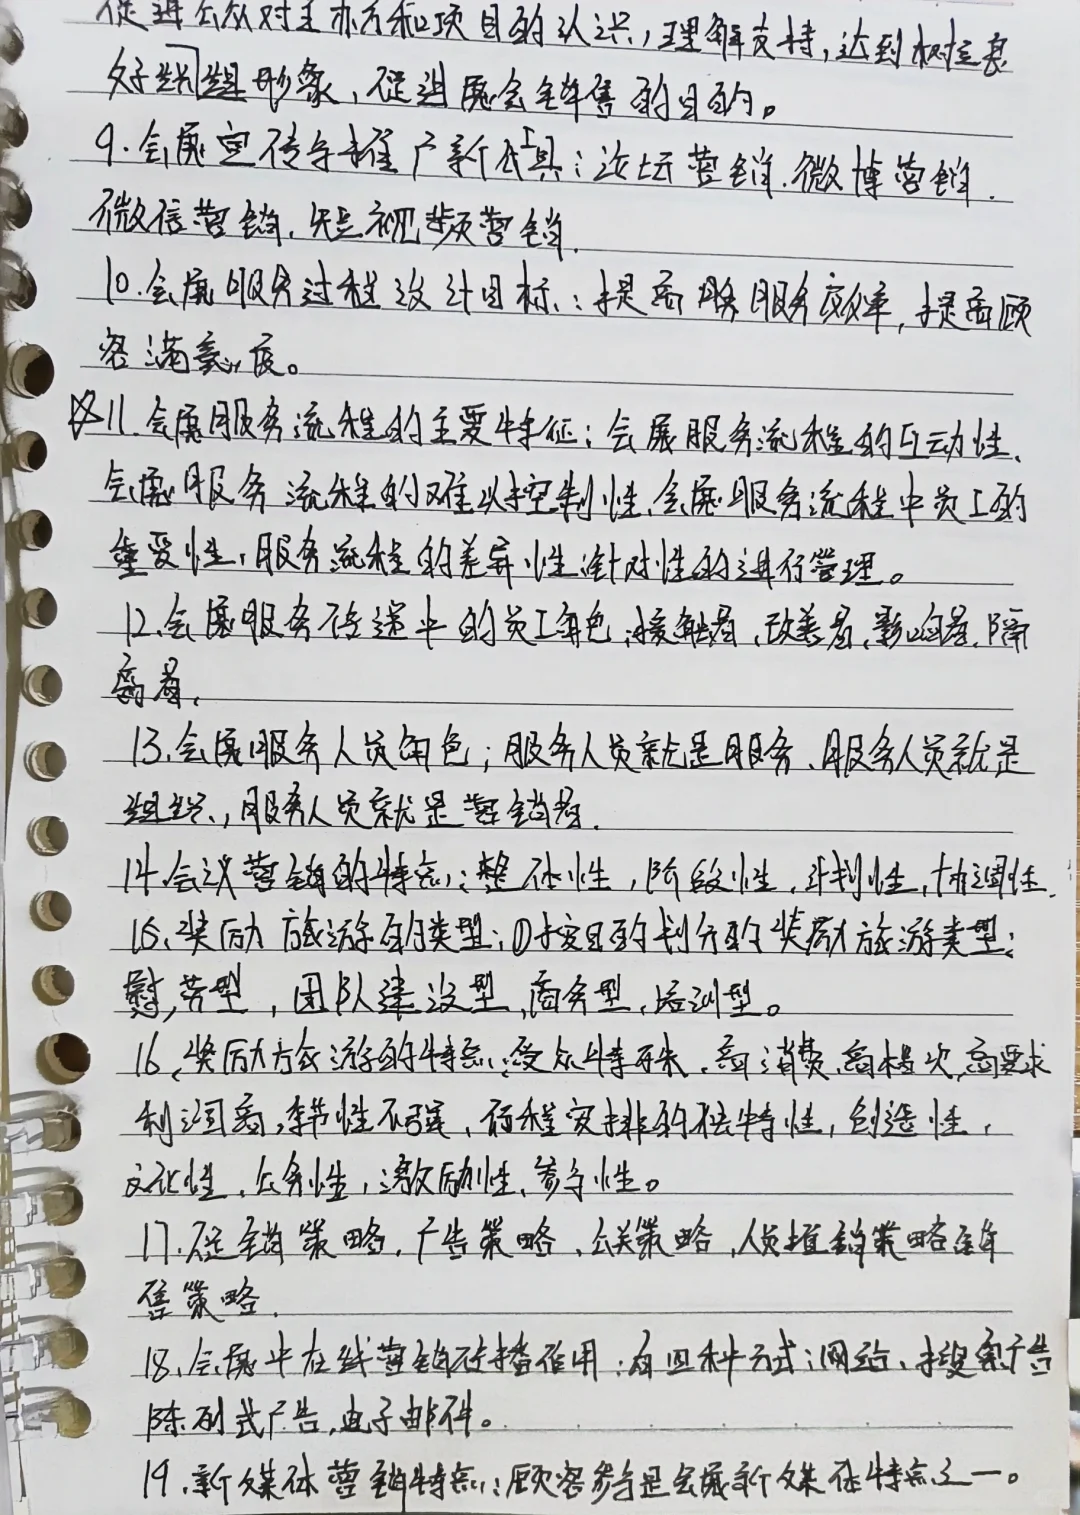 促进公众对主办方和项目的认识,理解支持,达到树立良
好组织形象,促进展会销售的目的。
9.会展宣传与推广新工具:论坛营销.微博营销.
微信营销,短视频营销.
10.会展服务过程设计目标:提高服务效率,提高顾
客满意度。
11.会展服务流程的主要特征:会展服务流程的互动性、
会展服务流程的难以控制性,会展服务流程中员工的
重要性,服务流程的差异性,针对性的进行管理。
12.会展服务传递中的员工角色:接触者,改善者,影响者,隔
离者,
13.会展服务人员角色;服务人员就是服务、服务人员就是
组织,服务人员就是营销者.
14.会议营销的特点:整体性,阶段性,计划性,协调性.
15、奖励旅游的类型:①按目的划分的奖励旅游类型:
慰劳型,团队建设型,商务型,培训型。
16、奖励旅游的特点:受众特殊、高消费,高档次,高要求
利润高,季节性不强,行程安排的独特性,创造性,
文化性、公务性,激励性、参与性。
17.促销策略,广告策略、公关策略,人员推销策略销
售策略.
18、会展中在线营销传播作用:有四种方式:网站、搜索广告
陈列式广告,电子邮件。
19.新媒体营销特点:顾客参与是会展新媒体特点之一。